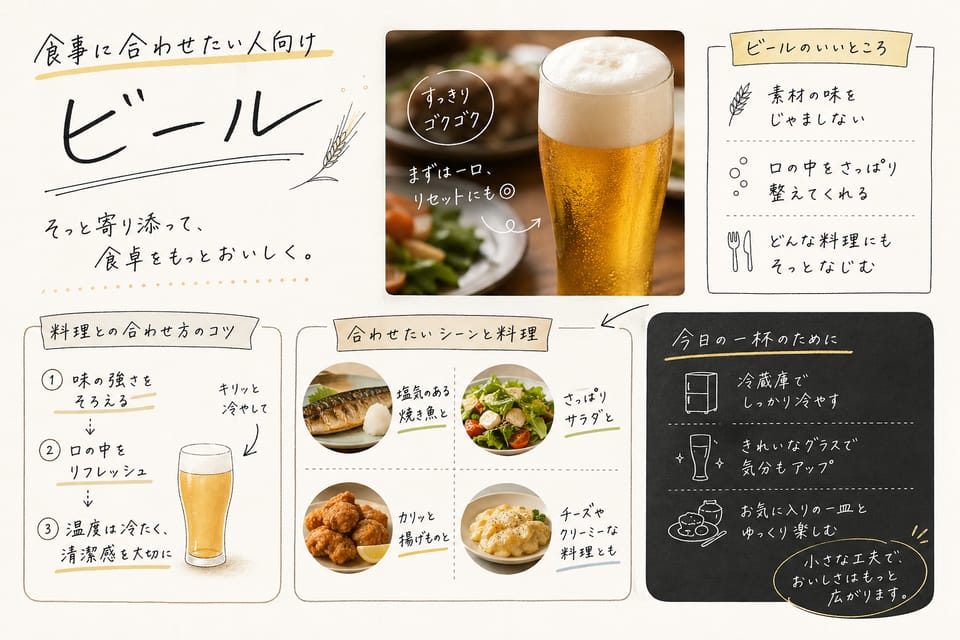 食事に合わせたい人向け
ビール
そっと寄り添って、
食卓をもっとおいしく。
すっきり
ゴクゴク
まずは一口、
リセットにも◎
ビールのいいところ
素材の味を
じゃましない
口の中をさっぱり
整えてくれる
どんな料理にも
そっとなじむ
料理との合わせ方のコツ
① 味の強さを
そろえる
② 口の中を
リフレッシュ
③ 温度は冷たく、
清潔感を大切に
キリッと
冷やして
合わせたいシーンと料理
塩気のある
焼き魚と
さっぱり
サラダと
カリッと
揚げものと
チーズや
クリーミーな
料理とも
今日の一杯のために
冷蔵庫で
しっかり冷やす
きれいなグラスで
気分もアップ
お気に入りの一皿と
ゆっくり楽しむ
小さな工夫で、
おいしさはもっと
広がります。